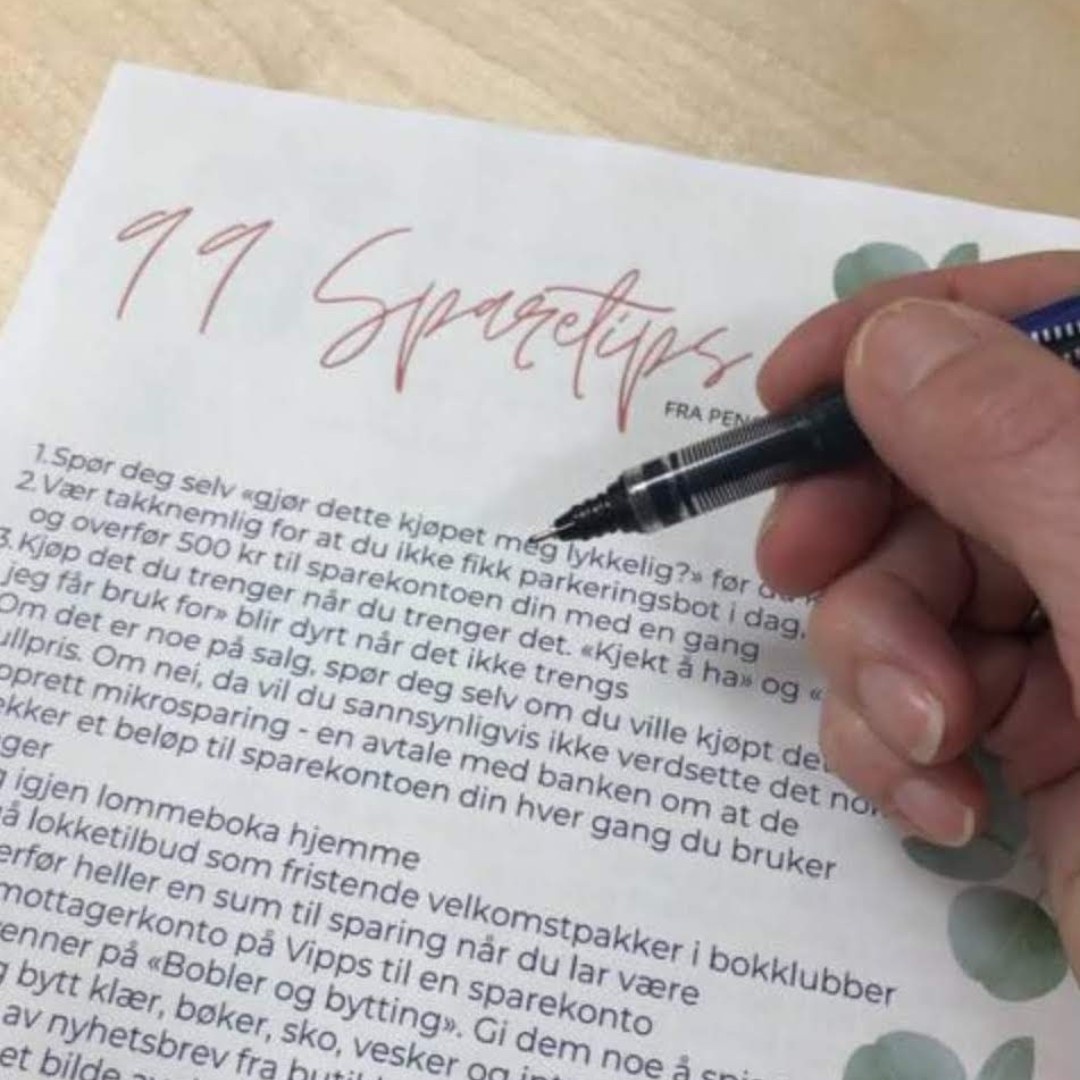 99 Sparetips
FRA
1. Spør deg selv «gjør dette kjøpet meg lykkelig?» før
2. Vær takknemlig for at du ikke fikk parkeringsbot i dag,
og overfør 500 kr til sparekontoen din med en gang
3. Kjøp det du trenger når du trenger det. «Kjekt å ha» og «
jeg får bruk for» blir dyrt når det ikke trengs
Om det er noe på salg, spør deg selv om du ville kjøpt
Om nei, da vil du sannsynligvis ikke verdsette det
mikrosparing - en avtale med banken om at de
et beløp til sparekontoen din hver gang du bruker
igjen lommeboka hjemme
lokketilbud som fristende velkomstpakker i bokklubber
heller en sum til sparing når du lar være
mottagerkonto på Vipps til en sparekonto
på «Bobler og bytting». Gi dem noe å
bytt klær, bøker, sko, vesker og
av nyhetsbrev fra
bilde